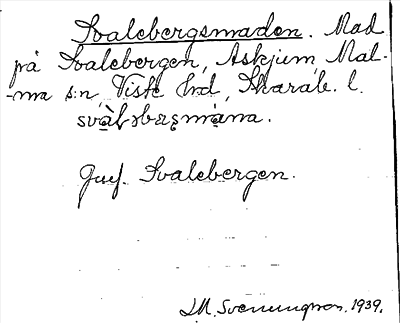 Svalebergsmaden. Mad
på Svalebergen, Askjum, Mal-
-ma s:n Viste hrd, Skarab. l.
svàl̵əbærsmàna.
Jmf. Svalebergen.
I.M. Svenungsson. 1939.